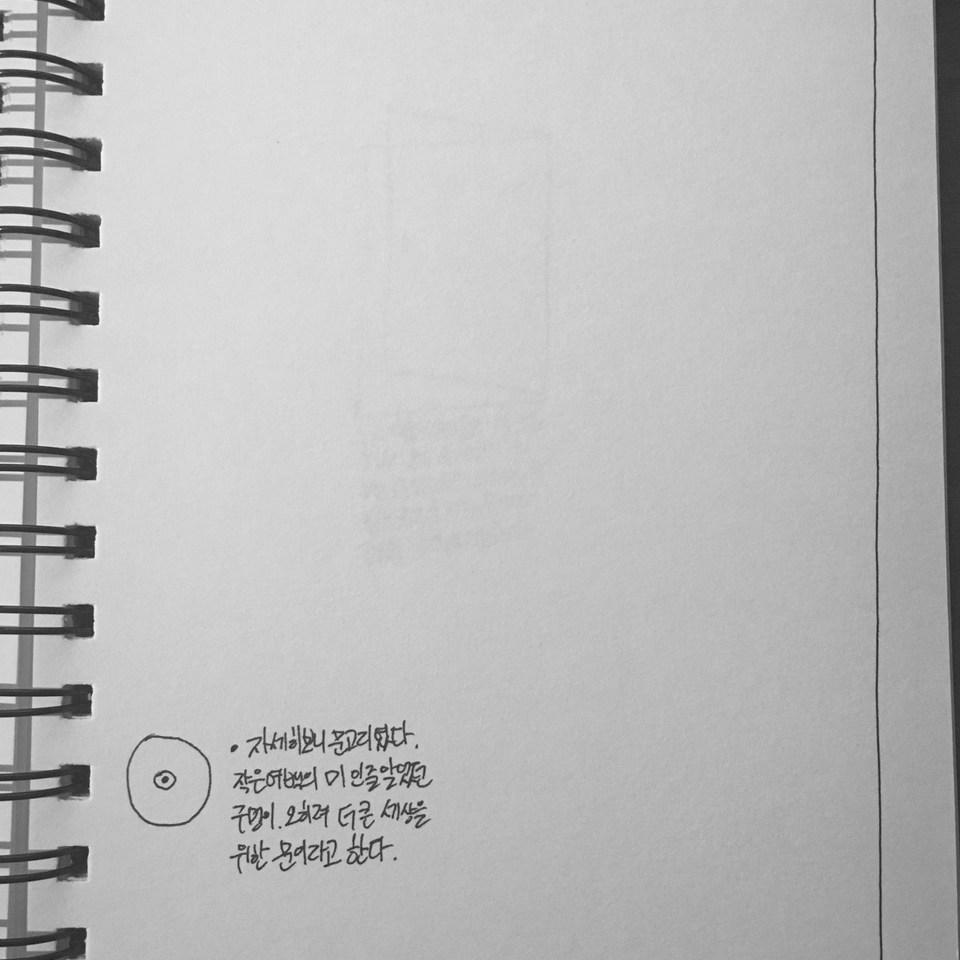 • 자세히보니 문고리였다.
작은여백의 미 인줄알았던
구멍이. 오히려 더 큰 세상을
위한 문이라고 한다.